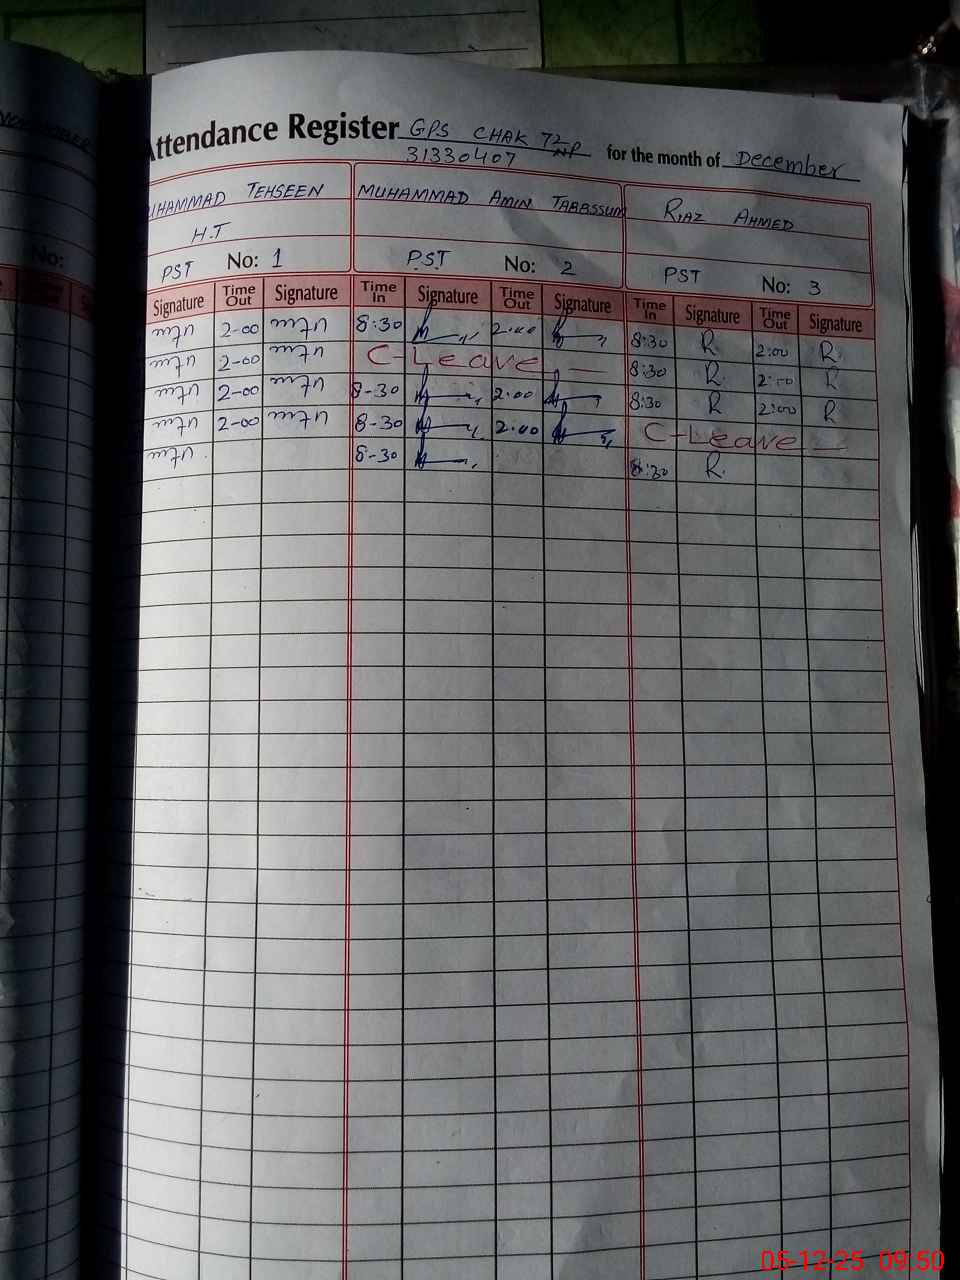 Attendance Register GPS CHAK 72/NP for the month of December
31330407
MUHAMMAD TEHSEEN MUHAMMAD AMIN TABASSUM RIAZ AHMED
H.T
PST No: 1 PST No: 2 PST No: 3
Signature Time Out Signature Time In Signature Time Out Signature Time In Signature Time Out Signature
2-00 8:30 2:00 8:30 R 2:00 R
2-00 C-Leave 8:30 R 2:00 R
2-00 8-30 2:00 8:30 R 2:00 R
2-00 8-30 2:00 C-Leave
8-30 8:30 R
No:
05-12-25 09:50